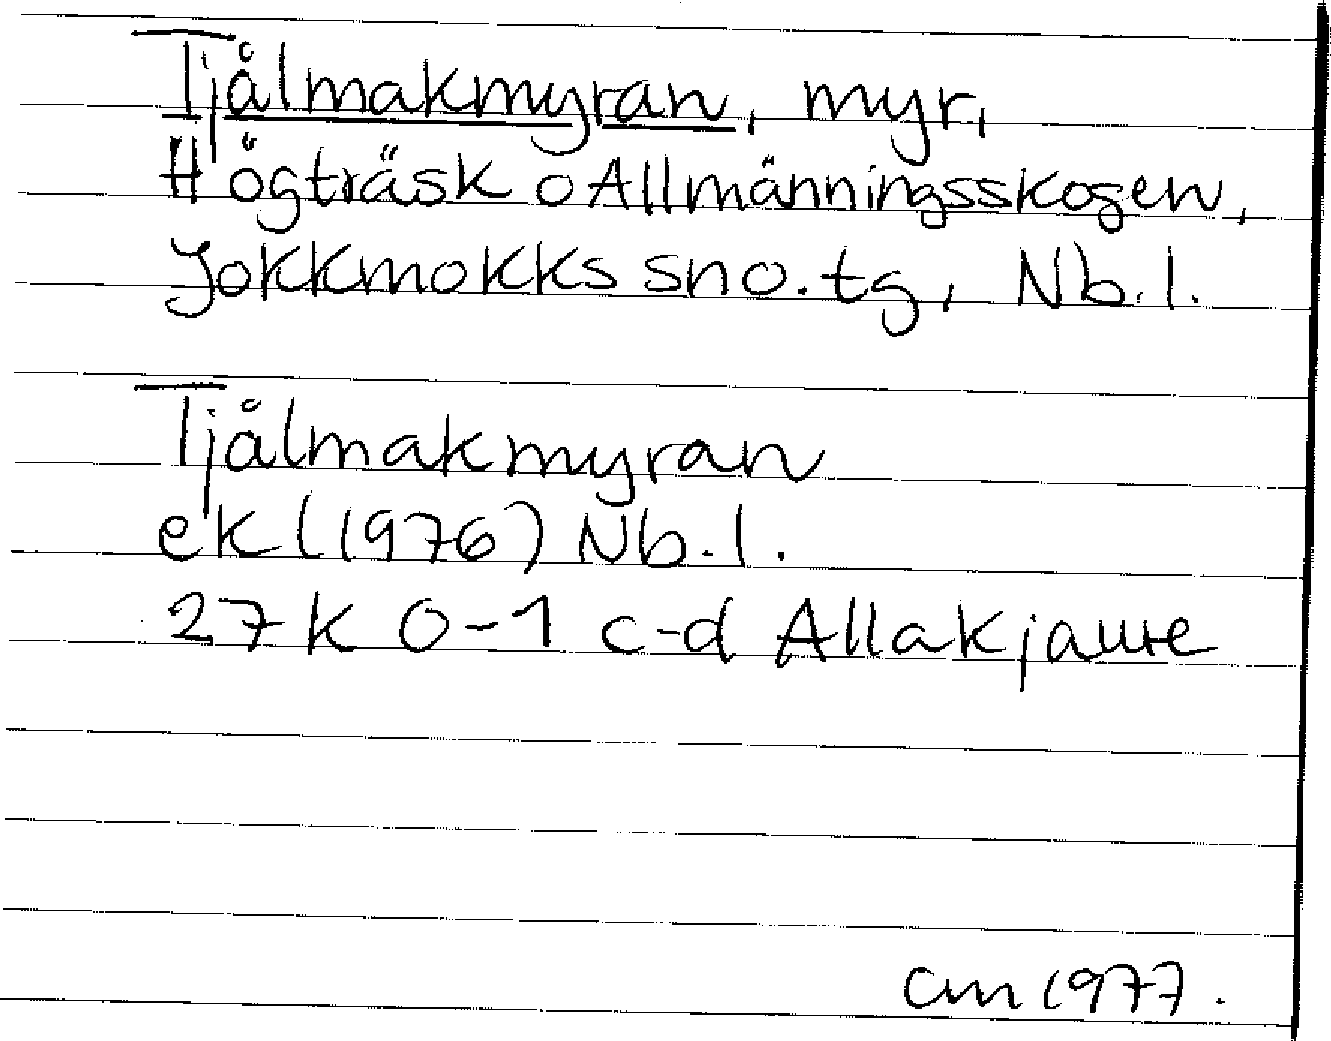 Tjålmakmyran, myr,
Högträsk o Allmänningsskogen,
Jokkmokks sno. tg, Nb. l.
Tjålmakmyran
ek (1976) Nb. l.
27 K 0-1 c-d Allakjaure
Cm 1977.